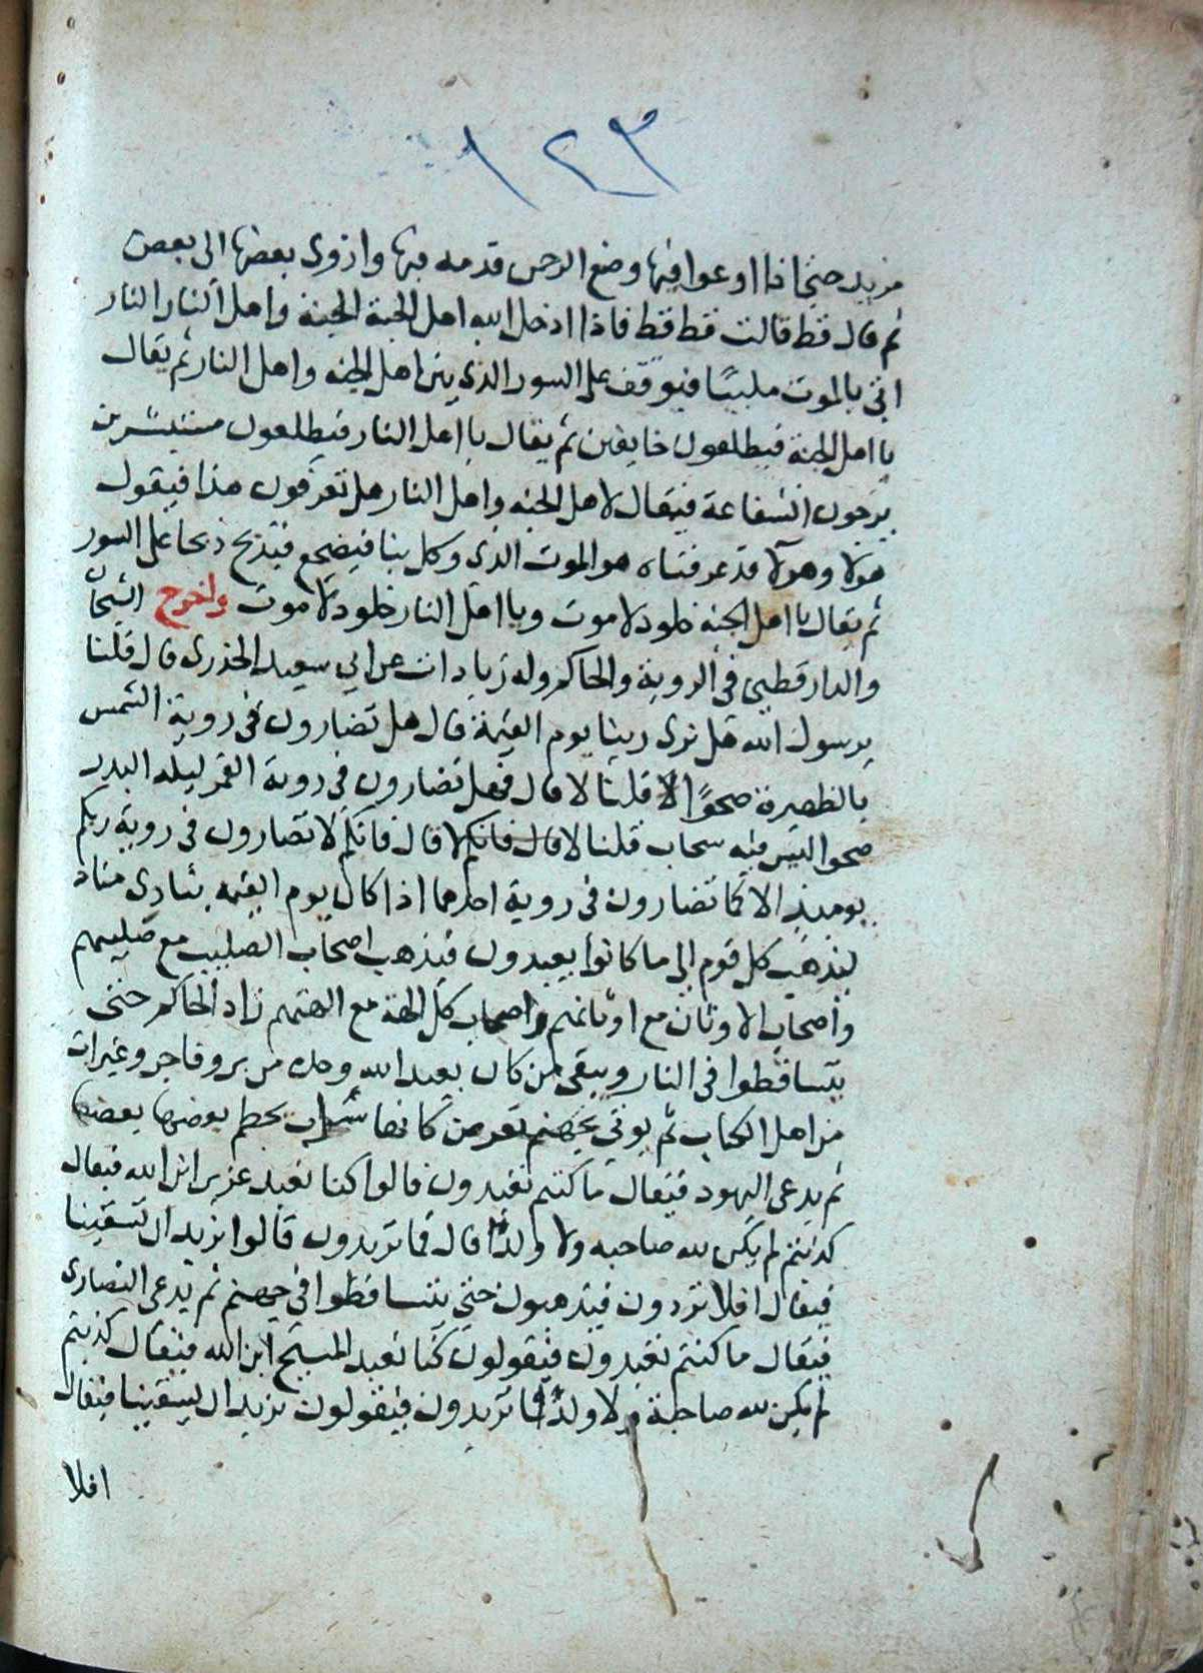 ١٢٣
مزيد حتى اذا اوعوا فيها وضع الرحمن قدمه فيها وازوى بعضها الى بعض
ثم قال قط قالت قط قط فاذا ادخل الله اهل الجنة الجنة واهل النار النار
اتى بالموت ملببًا فيوقف على السور الذى بين اهل الجنه واهل النار ثم يقال
يا اهل الجنة فيطلعون خايفين ثم يقال يا اهل النار فيطلعون مستبشرين
يرجون الشفاعة فيقال لاهل الجنه واهل النار هل تعرفون هذا فيقول
هولا وهولا قد عرفناه هو الموت الذى وكل بنا فيضجع فيذبح ذبحا على السور
ثم يقال يا اهل الجنه خلود لا موت ويا اهل النار خلود لا موت واخرج الشيخان
والدارقطنى فى الروية والحاكم وله زيادات عن ابي سعيد الخذرى قال قلنا
يرسول الله هل نرى ربنا يوم القيمة قال هل تضارون فى روية الشمس
بالظهيرة صحوًا قلنا لا قال فهل تضارون فى روية القمر ليله البدر
صحوا ليس فيه سحاب قلنا لا قال فانكم لا قال فانكم لا تضارون فى روية ربكم
يوميذ الا كما تضارون فى روية احدهما اذا كان يوم القيمه ينادى مناد
ليذهب كل قوم الى ما كانوا يعبدون فيذهب اصحاب الصليب مع صليبهم
واصحاب الاوثان مع اوثانهم واصحاب كل الهة مع الهتهم زاد الحاكم حتى
يتساقطوا فى النار ويبقى من كان يعبد الله وحده من بر وفاجر وغبرات
من اهل الكتاب ثم يوتى بجهنم تعرض كانها سراب يحطم بعضها بعضها
ثم يدعى اليهود فيقال ما كنتم تعبدون قالوا كنا نعبد عزير ابن الله فيقال
كذبتم لم يكن لله صاحبه ولا ولدًا قال فما تريدون قالوا نريد ان تسقينا
فيقال افلا تردون فيذهبون حتى يتساقطوا فى جهنم ثم يدعى النصارى
فيقال ما كنتم تعبدون فيقولون كنا نعبد المسيح ابن الله فيقال كذبتم
لم يكن لله صاحبة ولا ولدًا فما تريدون فيقولون نريد ان تسقينا فيقال
افلا